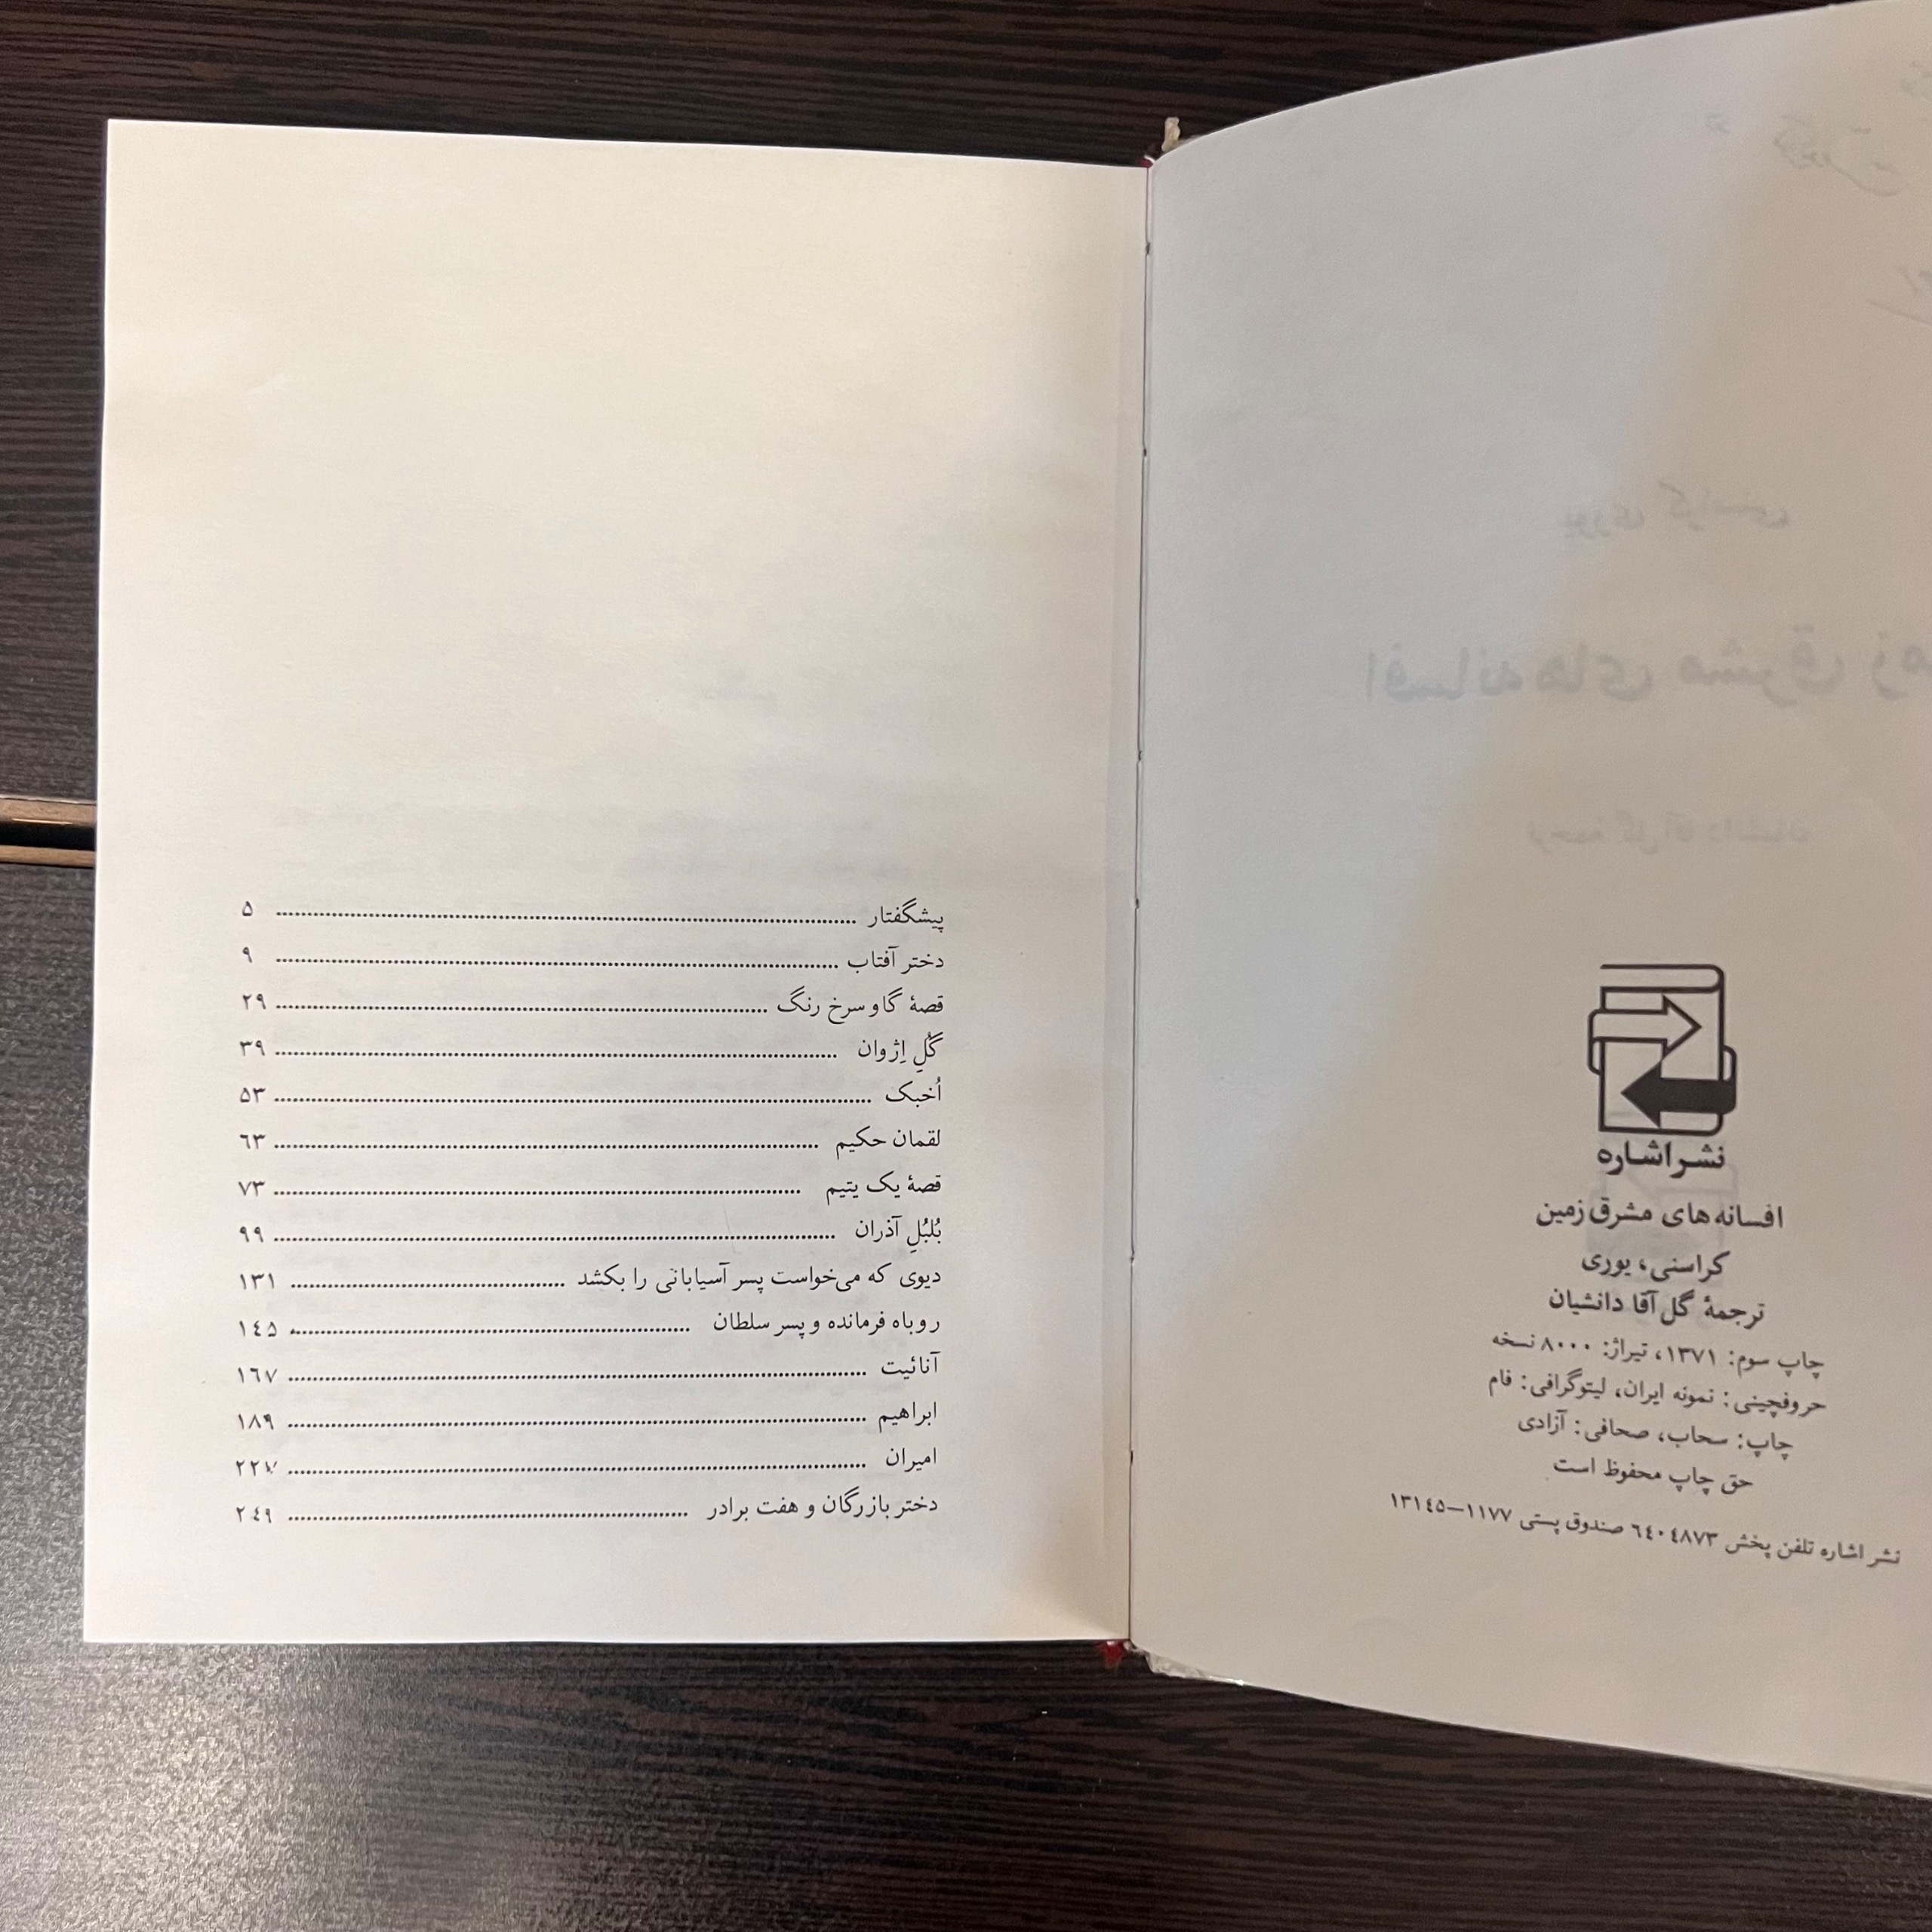 نشر اشاره
افسانه های مشرق زمین
کراسنی، یوری
ترجمهٔ گل آقا دانشیان
چاپ سوم: ۱۳۷۱، تیراژ: ۸۰۰۰ نسخه
حروفچینی: نمونه ایران، لیتوگرافی: فام
چاپ: سحاب، صحافی: آزادی
حق چاپ محفوظ است
نشر اشاره تلفن پخش ۶۴۰۴۸۷۳ صندوق پستی ۱۱۷۷–۱۳۱۴۵
پیشگفتار ........ ۵
دختر آفتاب ........ ۹
قصهٔ گاو سرخ رنگ ........ ۲۹
گُلِ اِژوان ........ ۳۹
اُخبک ........ ۵۳
لقمان حکیم ........ ۶۳
قصهٔ یک یتیم ........ ۷۳
بُلبُلِ آذران ........ ۹۹
دیوی که می‌خواست پسر آسیابانی را بکشد ........ ۱۳۱
روباه فرمانده و پسر سلطان ........ ۱۴۵
آنائیت ........ ۱۶۷
ابراهیم ........ ۱۸۹
امیران ........
دختر بازرگان و هفت برادر ........ ۲۴۹